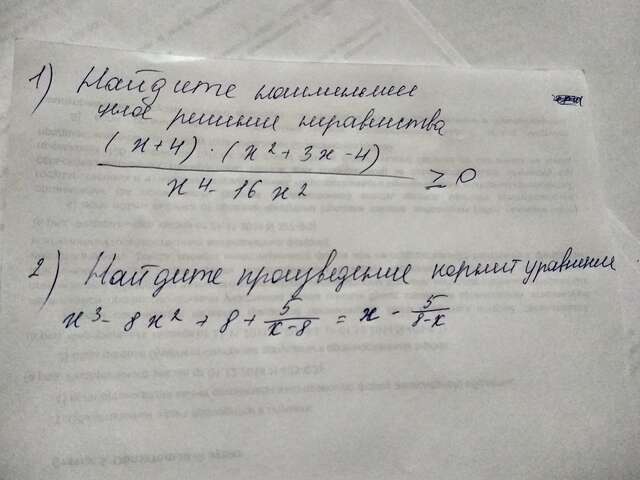 1) Найдите наименьшее
целое решение неравенства
(x+4)·(x²+3x-4)
x⁴-16x² ≥0
2) Найдите произведение корней уравнения
x³-8x²+8+5/(x-8)=x-5/(8-x)